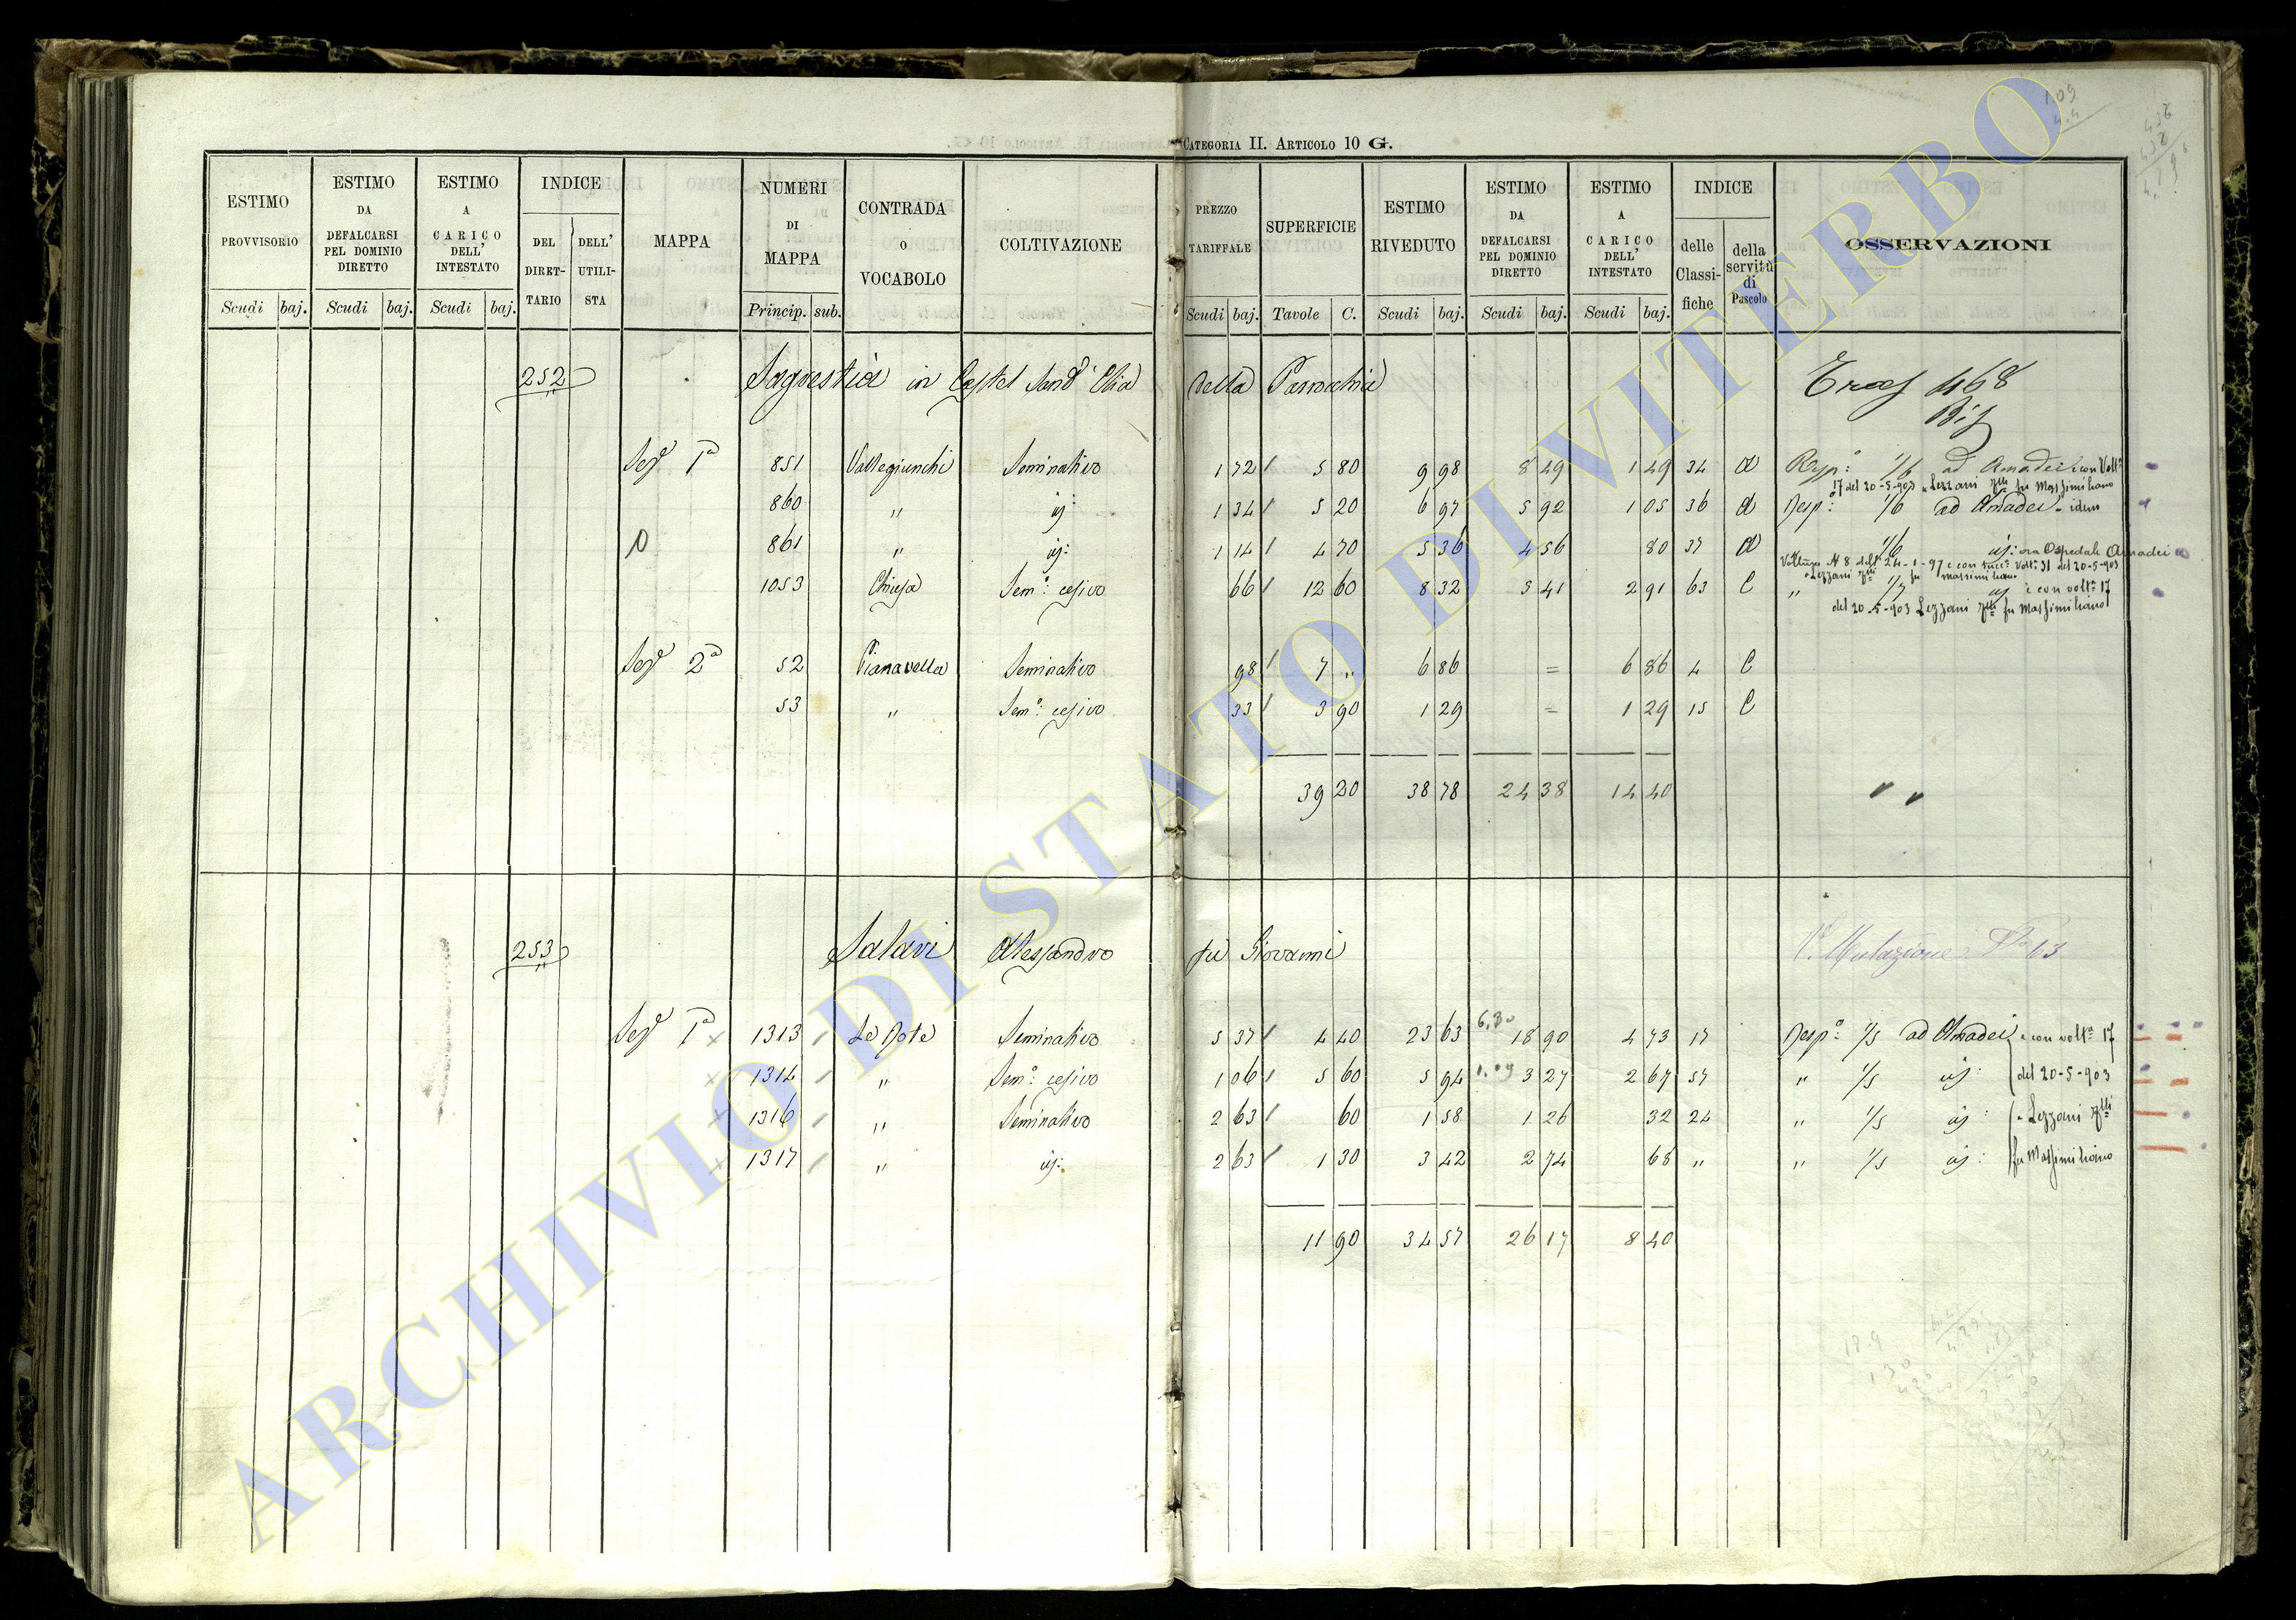 CATEGORIA II. ARTICOLO 10 G.
ESTIMO PROVVISORIO Scudi baj.
ESTIMO DA DEFALCARSI PEL DOMINIO DIRETTO Scudi baj.
ESTIMO A CARICO DELL' INTESTATO Scudi baj.
INDICE DEL DIRETTARIO DELL' UTILISTA
MAPPA
NUMERI DI MAPPA Princip. sub.
CONTRADA O VOCABOLO
COLTIVAZIONE
PREZZO TARIFFALE Scudi baj.
SUPERFICIE Tavole C.
ESTIMO RIVEDUTO Scudi baj.
ESTIMO DA DEFALCARSI PEL DOMINIO DIRETTO Scudi baj.
ESTIMO A CARICO DELL' INTESTATO Scudi baj.
INDICE delle Classifiche della servitù di Pascolo
OSSERVAZIONI
252 Sagrestia in Castel Sant' Elia della Parrochia 468
Bis
Sezе 1a 851 Vallegiunchi Seminativo 1 72 5 80 9 98 8 49 1 49 34 d Resp: 1/6 ad Amadei e con Volta
17 del 20-5-903 a Lezzani fu Massimiliano
860 " id: 1 34 5 20 6 97 5 92 1 05 36 d Resp: 1/6 ad Amadei - idem
861 " id: 1 14 4 70 5 36 4 56 80 37 d 1/6 id: ora Ospedale Amadei
Voltura N 8 del 24-1-97 e con succ: Volta 31 del 20-5-903
a Lezzani fu Massimiliano
1053 Chiesa Sem: cesivo 66 12 60 8 32 5 41 2 91 63 C " 1/7 id e con volta 17
del 20-5-903 Lezzani fu Massimiliano
Sezе 2a 52 Pianavella Seminativo 98 7 " 6 86 = 6 86 4 C
53 " Sem: cesivo 33 3 90 1 29 = 1 29 15 C
39 20 38 78 24 38 14 40 " "
253 Salari Alessandro fu Giovanni Mutazione 63
Sezе 1a 1313 Le Rote Seminativo 5 37 4 40 23 63 18 90 4 73 17 Resp: 1/5 ad Amadei e con volta 17
1314 " Sem: cesivo 1 06 5 60 5 94 1.09 3 27 2 67 57 " 1/5 id: del 20-5-903
1316 " Seminativo 2 63 60 1 58 1 26 32 24 " 1/5 id: a Lezzani
1317 " id: 2 63 1 30 3 42 2 74 68 " " 1/5 id: fu Massimiliano
11 90 34 57 26 17 8 40
ARCHIVIO DI STATO DI VITERBO